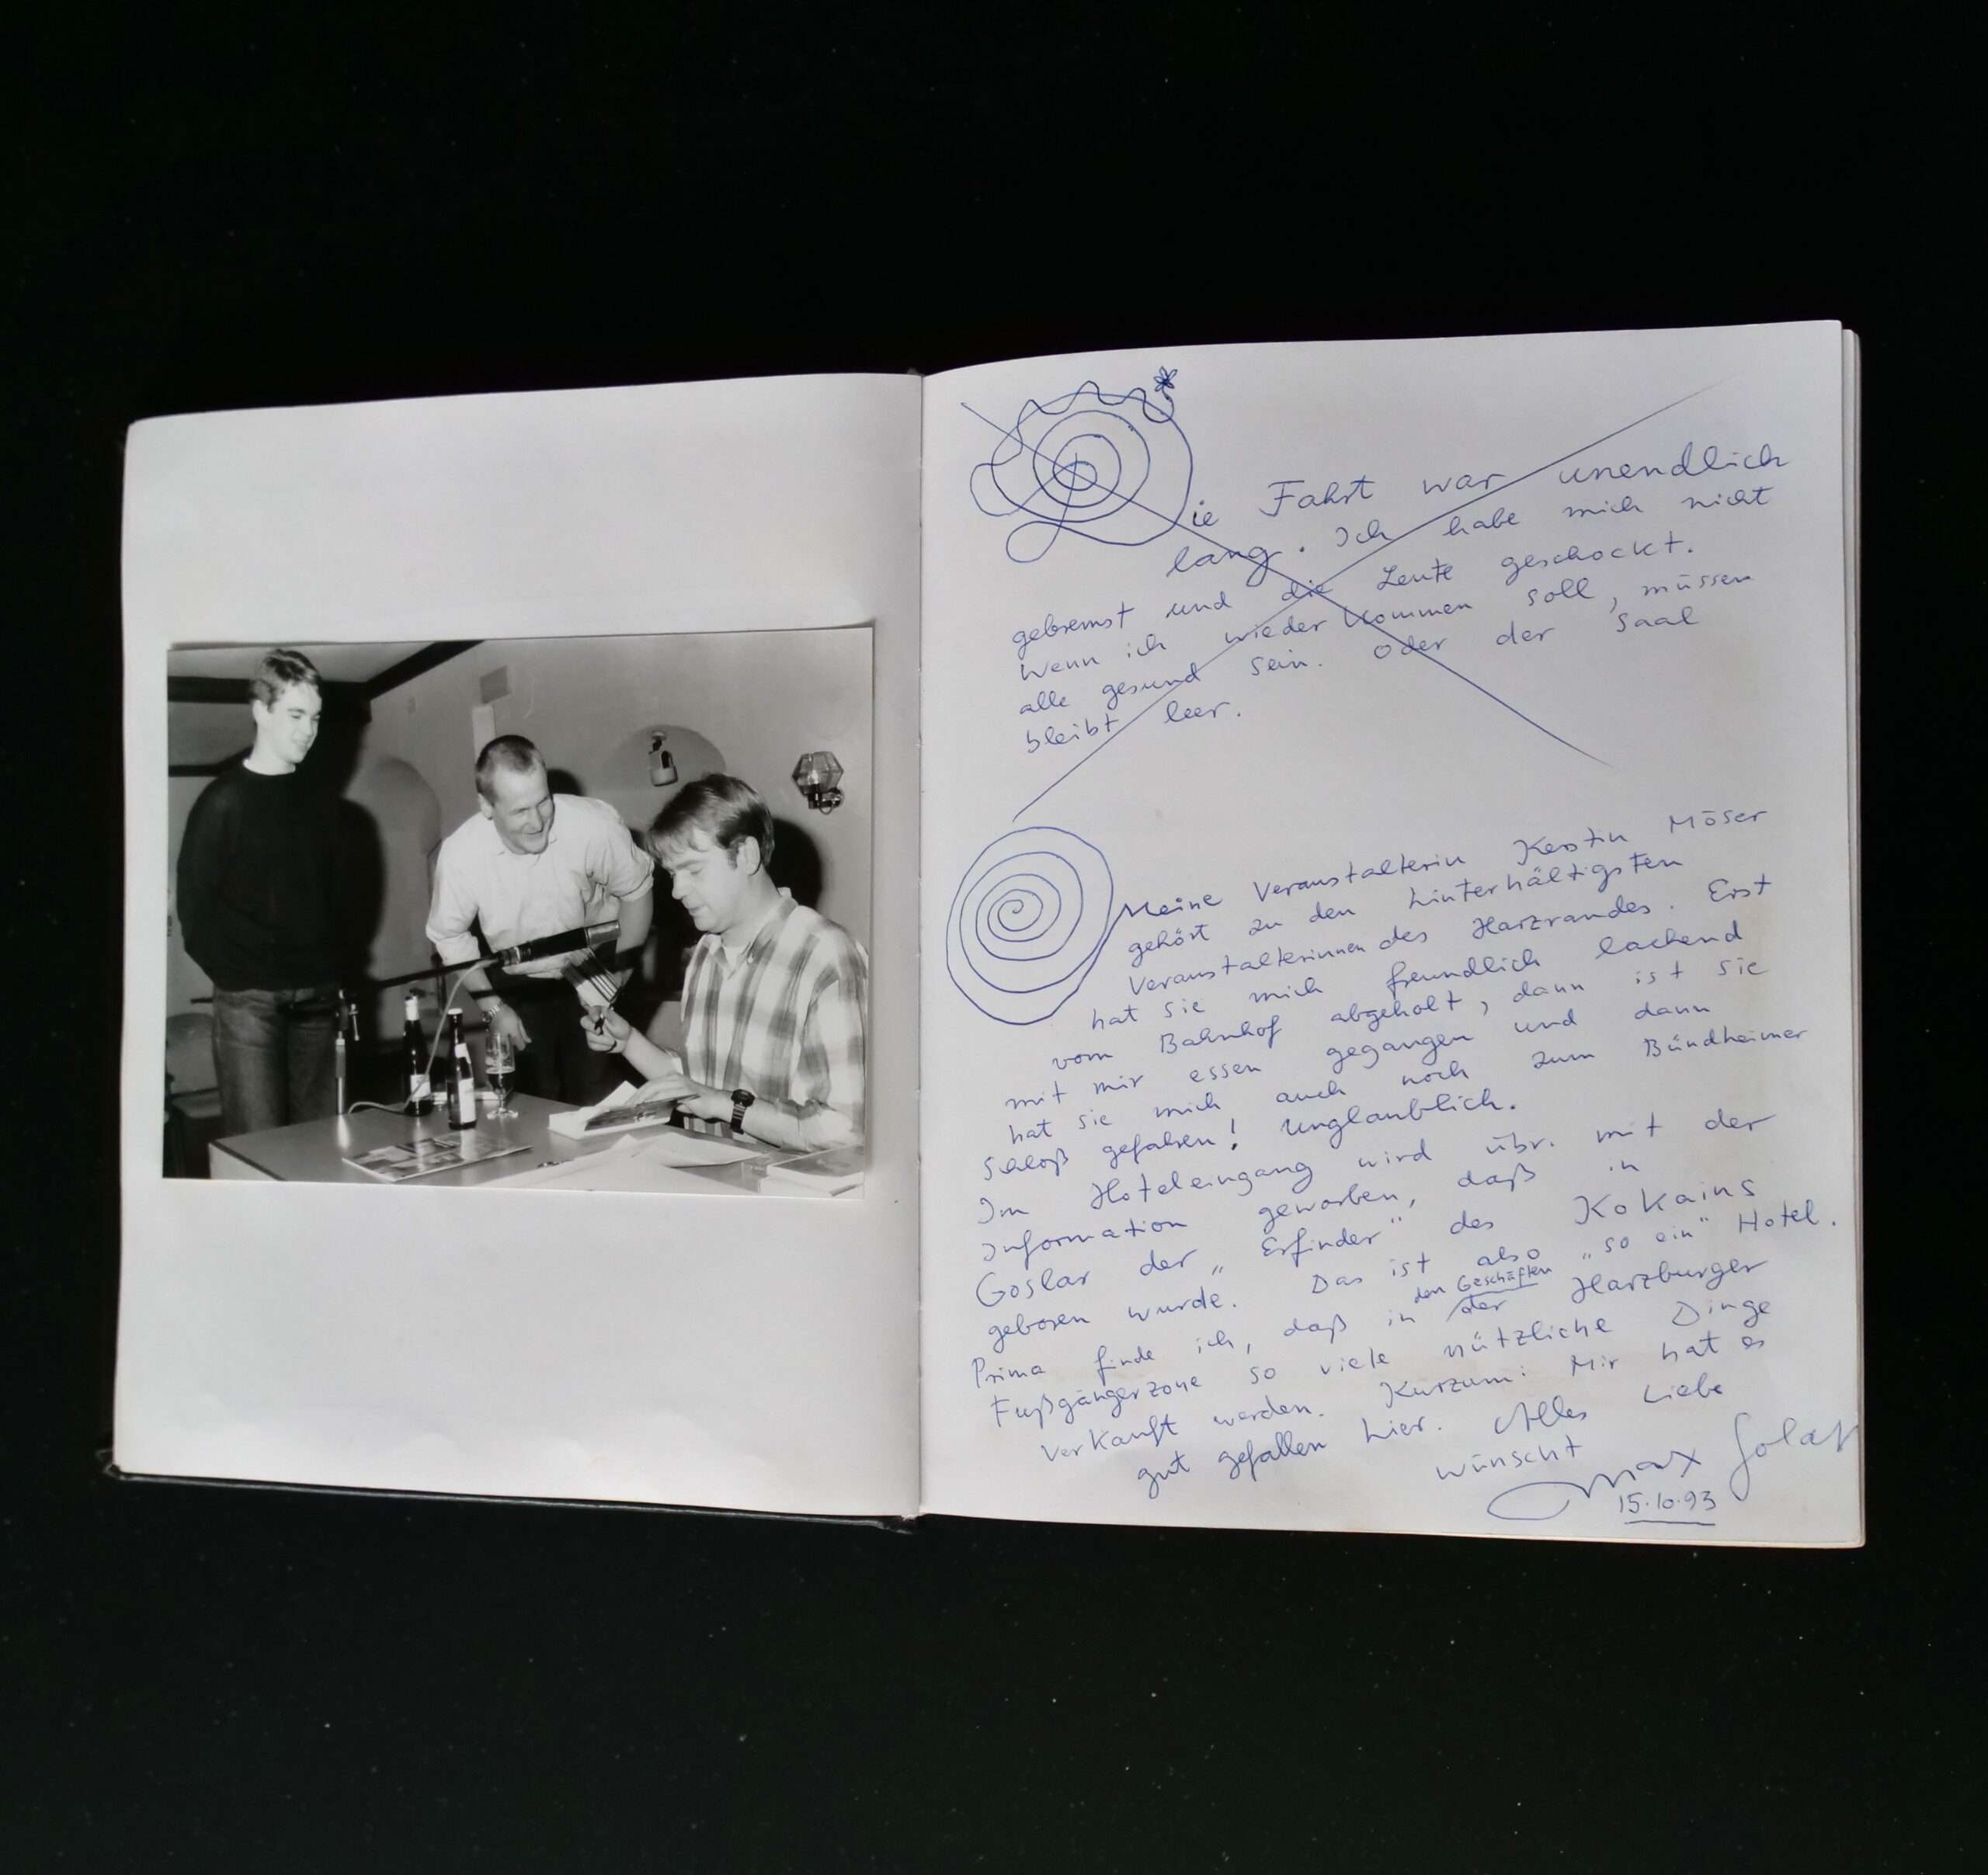 Die Fahrt war unendlich
lang. Ich habe mich nicht
gebremst und die Leute geschockt.
Wenn ich wieder kommen soll, müssen
alle gesund sein. Oder der Saal
bleibt leer.
Meine Veranstalterin Kerstin Möser
gehört zu den hinterhältigsten
Veranstalterinnen des Harzrandes. Erst
hat sie mich freundlich lachend
vom Bahnhof abgeholt, dann ist sie
mit mir essen gegangen und dann
hat sie mich auch noch zum Bündheimer
Schloß gefahren! Unglaublich.
Im Hoteleingang wird übr. mit der
Information geworben, daß in
Goslar der „Erfinder" des Kokains
geboren wurde. Das ist also „so ein" Hotel.
Prima finde ich, daß in den Geschäften der Harzburger
Fußgängerzone so viele nützliche Dinge
verkauft werden. Kurzum: Mir hat es
gut gefallen hier. Alles Liebe
wünscht
Max Goldt
15.10.93